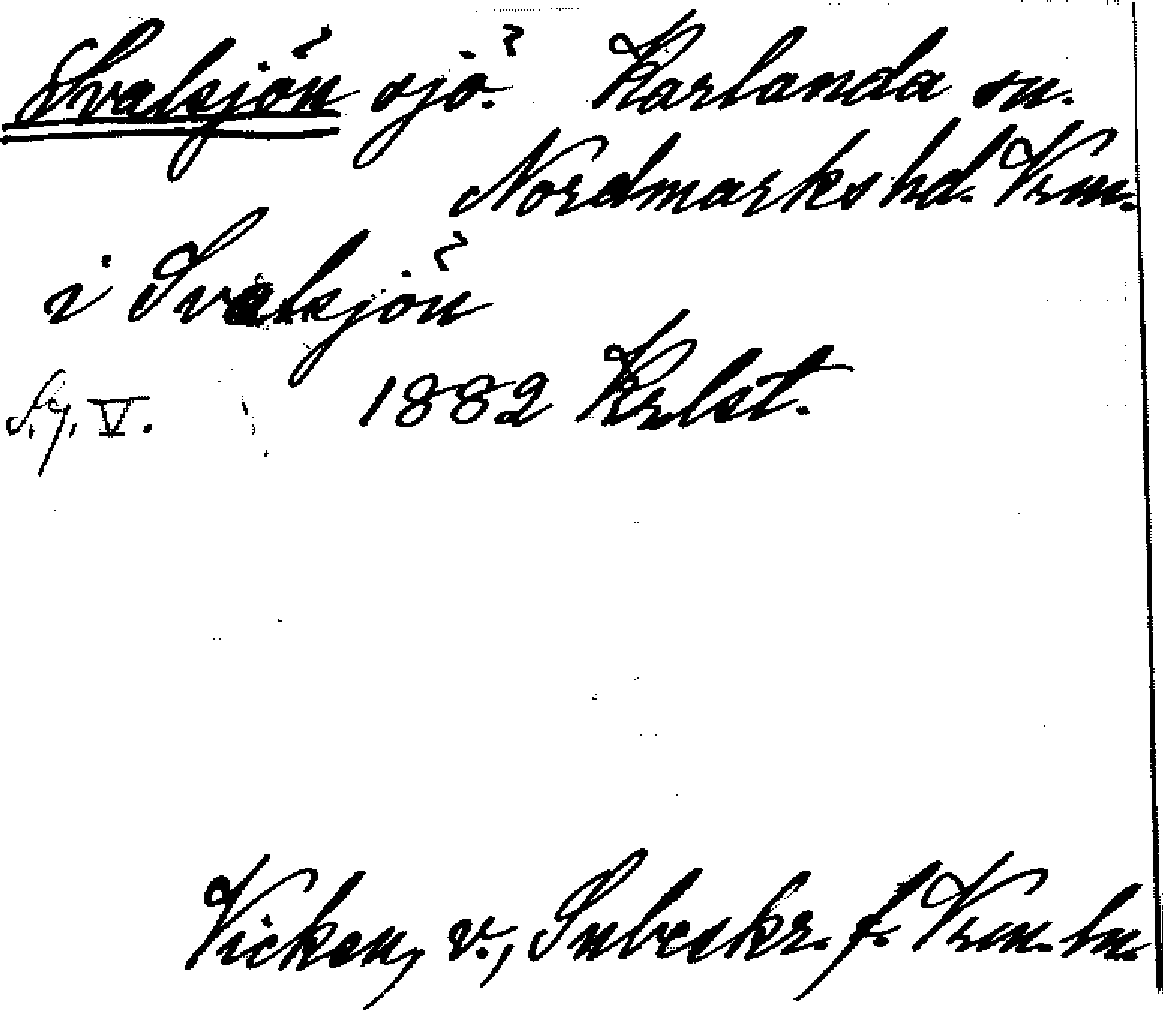 Svalsjön sjö. Karlanda sn.
Nordmarks hd. Vrm.
i Svalsjön
1882 Krlst.
Vicken, v., Snbeskr. f. Vrm. ln.